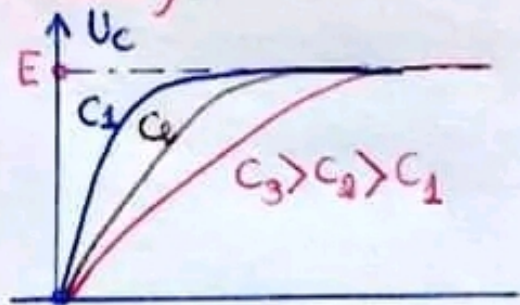 Uc
E
C1
C2
C3>C2>C1